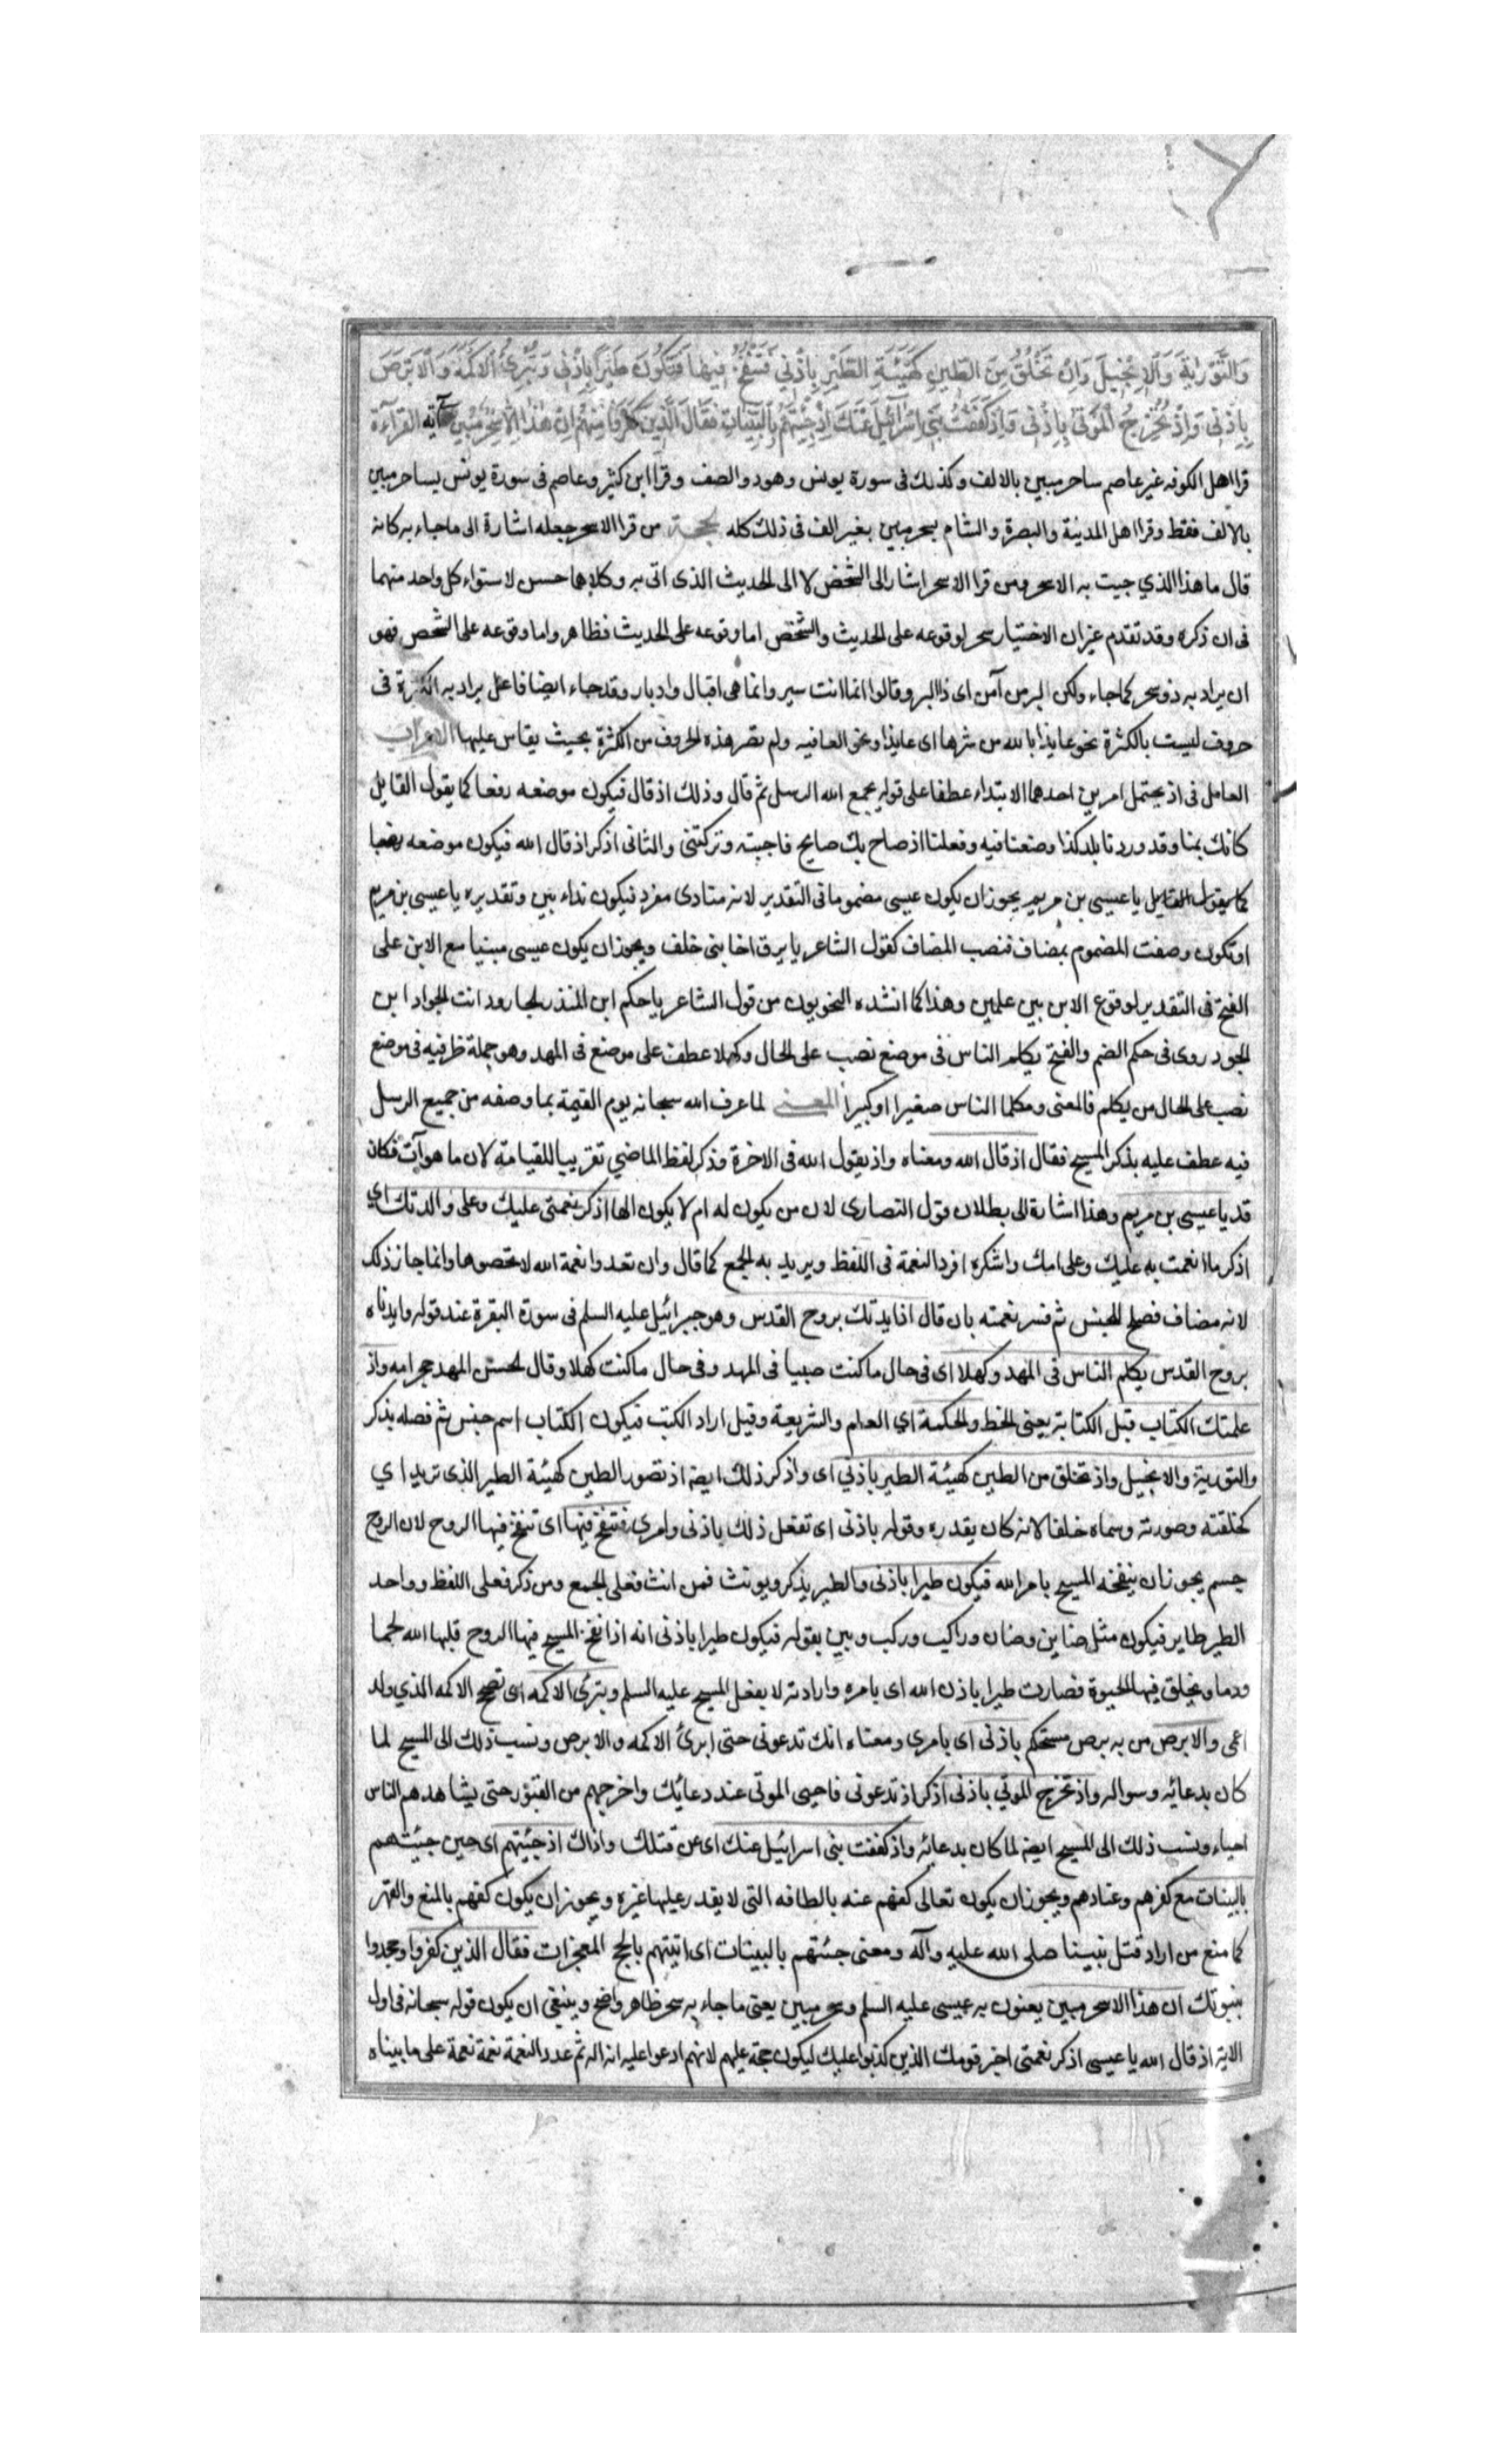 وَالتَّوْرٰیةَ وَالْاِنْجِیلَ وَاِذْ تَخْلُقُ مِنَ الطّینِ كَهَیْئَةِ الطَّیْرِ بِاِذْنی فَتَنْفُخُ فیها فَتَكُونُ طَیْراً بِاِذْنی وَتُبْرِئُ الْاَكْمَهَ وَالْاَبْرَصَ
بِاِذْنی وَاِذْ تُخْرِجُ الْمَوْتی بِاِذْنی وَاِذْ كَفَفْتُ بَنی اِسْرائیلَ عَنْكَ اِذْ جِئْتَهُمْ بِالْبَیِّناتِ فَقالَ الَّذینَ كَفَرُوا مِنْهُمْ اِنْ هٰذا اِلّا سِحْرٌ مُبینٌ آیة القراءة
قرا اهل الكوفه غیر عاصم ساحر مبین بالالف وكذلك فی سورة یونس وهود والصف وقرا ابن كثیر وعاصم فی سورة یونس لساحر مبین
بالالف فقط وقرا اهل المدینة والبصرة والشام سحر مبین بغیر الف فی ذلك كله الحجة من قرا الا سحر جعله اشارة الی ما جاء به كانه
قال ما هذا الذی جیت به الا سحر ومن قرا الا سحر اشار الی الشخص لا الی الحدیث الذی اتی به وكلاهما حسن لاستواء كل واحد منهما
فی ان ذكره وقد تقدم غیر ان الاختیار سحر لوقوعه علی الحدیث والشخص اما وقوعه علی الحدیث فظاهر واما وقوعه علی الشخص فهو
ان یراد به ذو سحر كما جاء ولكن البر من آمن ای ذا البر وقالوا انما انت سیر وانما هی اقبال وادبار وقد جاء ایضا فاعل یراد به الكثرة فی
حروف لیست بالكثرة نحو عایذا بالله من شرها ای عایذا ونحو العافیه ولم تصر هذه الحروف من الكثرة بحیث یقاس علیها الاعراب
العامل فی اذ یحتمل امرین احدهما الابتداء عطفا علی قوله یجمع الله الرسل ثم قال وذلك اذ قال فیكون موضعه رفعا كما یقول القایل
كانك بمنا وقد وردنا بلد كذا وصنعنا فیه وفعلنا اذ صاح بك صایح فاجبته وتركتنی والثانی اذكر اذ قال الله فیكون موضعه نصبا
كما یقول القایل یا عیسی بن مریم یجوز ان یكون عیسی مضموما فی التقدیر لانه منادی مفرد فیكون نداء بین وتقدیره یا عیسی بن مریم
او تكون وصفت المضموم بمضاف فنصب المضاف كقول الشاعر یا برق اخا بنی خلف ویجوز ان یكون عیسی مبنیا مع الابن علی
الفتح فی التقدیر لوقوع الابن بین علمین وهذا كما انشده النحویون من قول الشاعر یا حكم ابن المنذر الجارود انت الجواد ابن
الجود روی فی حكم الضم والفتح یكلم الناس فی موضع نصب علی الحال وكهلا عطف علی موضع فی المهد وهو جملة ظرفیه فی موضع
نصب علی الحال من یكلم فالمعنی ومكلما الناس صغیرا وكبیرا المعنی لما عرف الله سبحانه یوم القیمة بما وصفه من جمیع الرسل
فیه عطف علیه بذكر المسیح فقال اذ قال الله ومعناه واذ یقول الله فی الاخرة وذكر لفظ الماضی تقریبا للقیامة لان ما هو آت فكان
قد یا عیسی بن مریم وهذا اشارة الی بطلان قول النصاری لان من یكون له ام لا یكون الها اذكر نعمتی علیك وعلی والدتك ای
اذكر ما انعمت به علیك وعلی امك واشكره افرد النعمة فی اللفظ ویرید به الجمع كما قال وان تعدوا نعمة الله لا تحصوها وانما جاز ذلك
لانه مضاف فصلح للجنس ثم فسر نعمته بان قال اذ ایدتك بروح القدس وهو جبرائیل علیه السلم فی سورة البقرة عند قوله وایدناه
بروح القدس یكلم الناس فی المهد وكهلا ای فی حال ما كنت صبیا فی المهد وفی حال ما كنت كهلا وقال الحسن المهد حجر امه واذ
علمتك الكتاب قیل الكتابة یعنی الخط والحكمة ای العلم والشریعة وقیل اراد الكتب فیكون الكتاب اسم جنس ثم فصله بذكر
والتوریة والانجیل واذ تخلق من الطین كهیئة الطیر باذنی ای واذكر ذلك ایضا اذ تصور الطین كهیئة الطیر الذی ترید ای
كخلقته وصورته وسماه خلقا لانه كان یقدره وقوله باذنی ای تفعل ذلك باذنی وامری فتنفخ فیها ای تنفخ فیها الروح لان الروح
جسم یجوز ان ینفخه المسیح بامر الله فیكون طیرا باذنی والطیر یذكر ویونث فمن انث فعلی الجمع ومن ذكر فعلی اللفظ وواحد
الطیر طایر فیكون مثل ضاین وضان وراكب وركب وبین بقوله فیكون طیرا باذنی انه اذا نفخ المسیح فیها الروح قلبها الله لحما
ودما ویخلق فیها الحیوة فصارت طیرا باذن الله ای بامره وارادته لا بفعل المسیح علیه السلم وتبرئ الاكمه ای تصحح الاكمه الذی ولد
اعمی والابرص من به برص مستحكم باذنی ای بامری ومعناه انك تدعونی حتی ابرئ الاكمه والابرص ونسب ذلك الی المسیح لما
كان بدعائه وسواله واذ تخرج الموتی باذنی اذكر اذ تدعونی فاحیی الموتی عند دعائك واخرجهم من القبور حتی یشاهدهم الناس
احیاء ونسب ذلك الی المسیح ایضا لما كان بدعائه واذ كففت بنی اسرائیل عنك ای عن قتلك واذاك اذ جئتهم ای حین جیئتهم
بالبینات مع كفرهم وعنادهم ویجوز ان یكون تعالی كفهم عنه بالطافه التی لا یقدر علیها غیره ویجوز ان یكون كفهم بالمنع والقهر
كما منع من اراد قتل نبینا صلی الله علیه وآله ومعنی جئتهم بالبینات ای اتیتهم بالحجج المعجزات فقال الذین كفروا وجحدوا
بنبوتك ان هذا الا سحر مبین یعنون به عیسی علیه السلم وسحر مبین یعنی ما جاء به سحر ظاهر واضح وینبغی ان یكون قوله سبحانه فی اول
الایة اذ قال الله یا عیسی اذكر نعمتی اخبر قومك الذین كذبوا علیك لیكون حجة علیهم لانهم ادعوا علیه انه اله ثم عدد النعمة نعمة نعمة علی ما بیناه